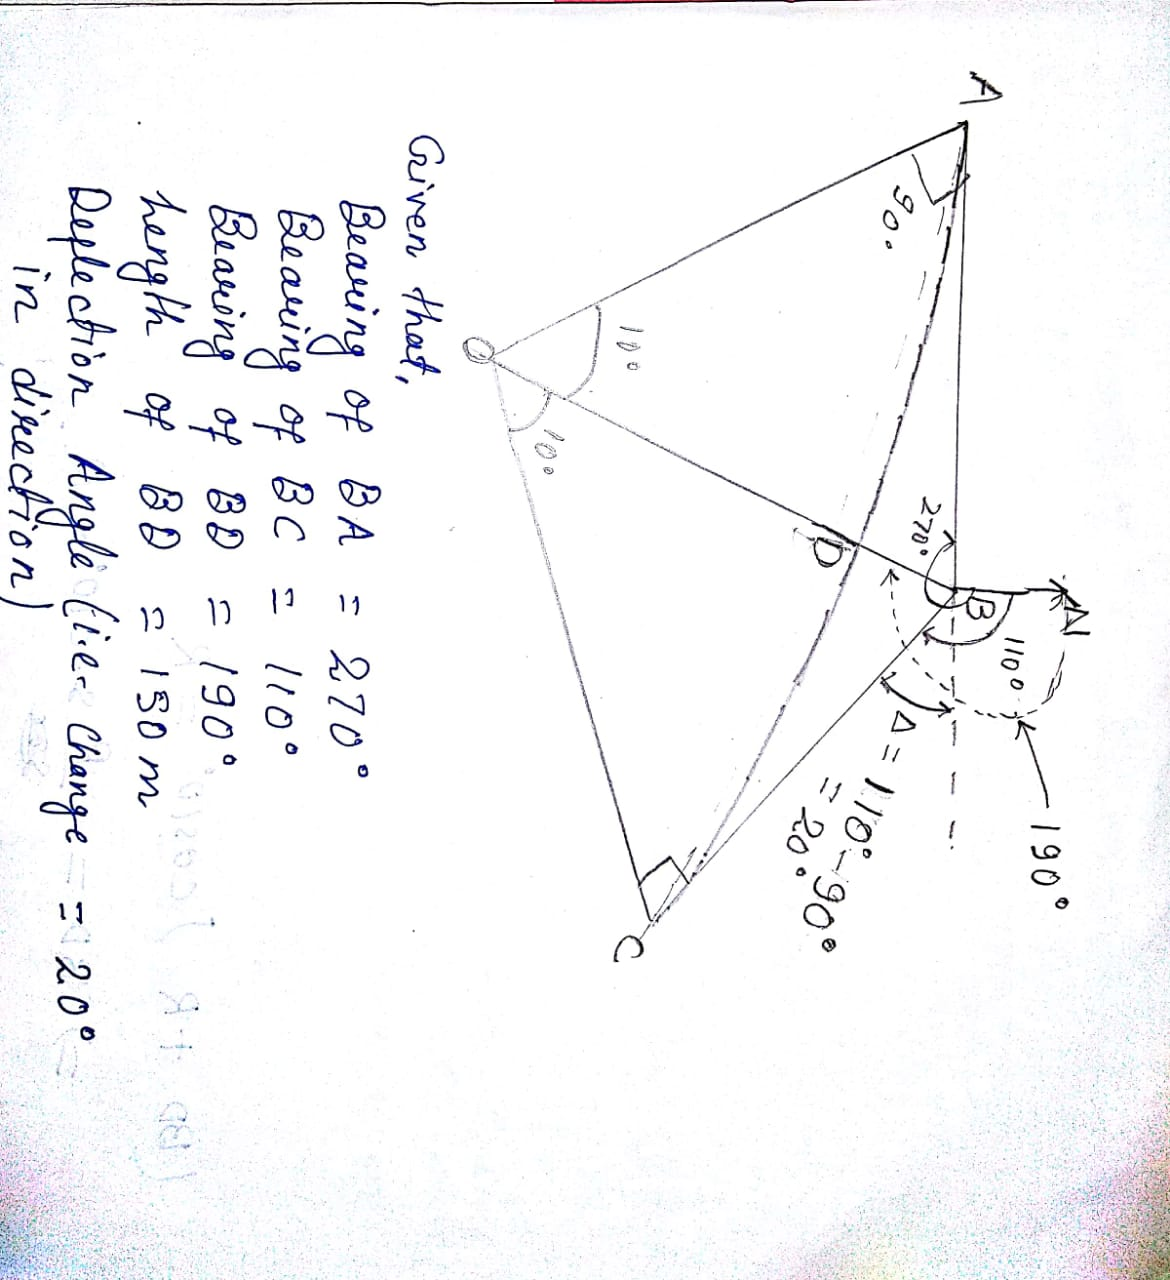 A
90°
10°
O
10°
D
270°
B
N
110°
190°
Δ = 110° - 90°
= 20°
C
Given that,
Bearing of BA = 270°
Bearing of BC = 110°
Bearing of BD = 190°
Length of BD = 150 m
Deflection Angle (i.e. Change = 20°
in direction)